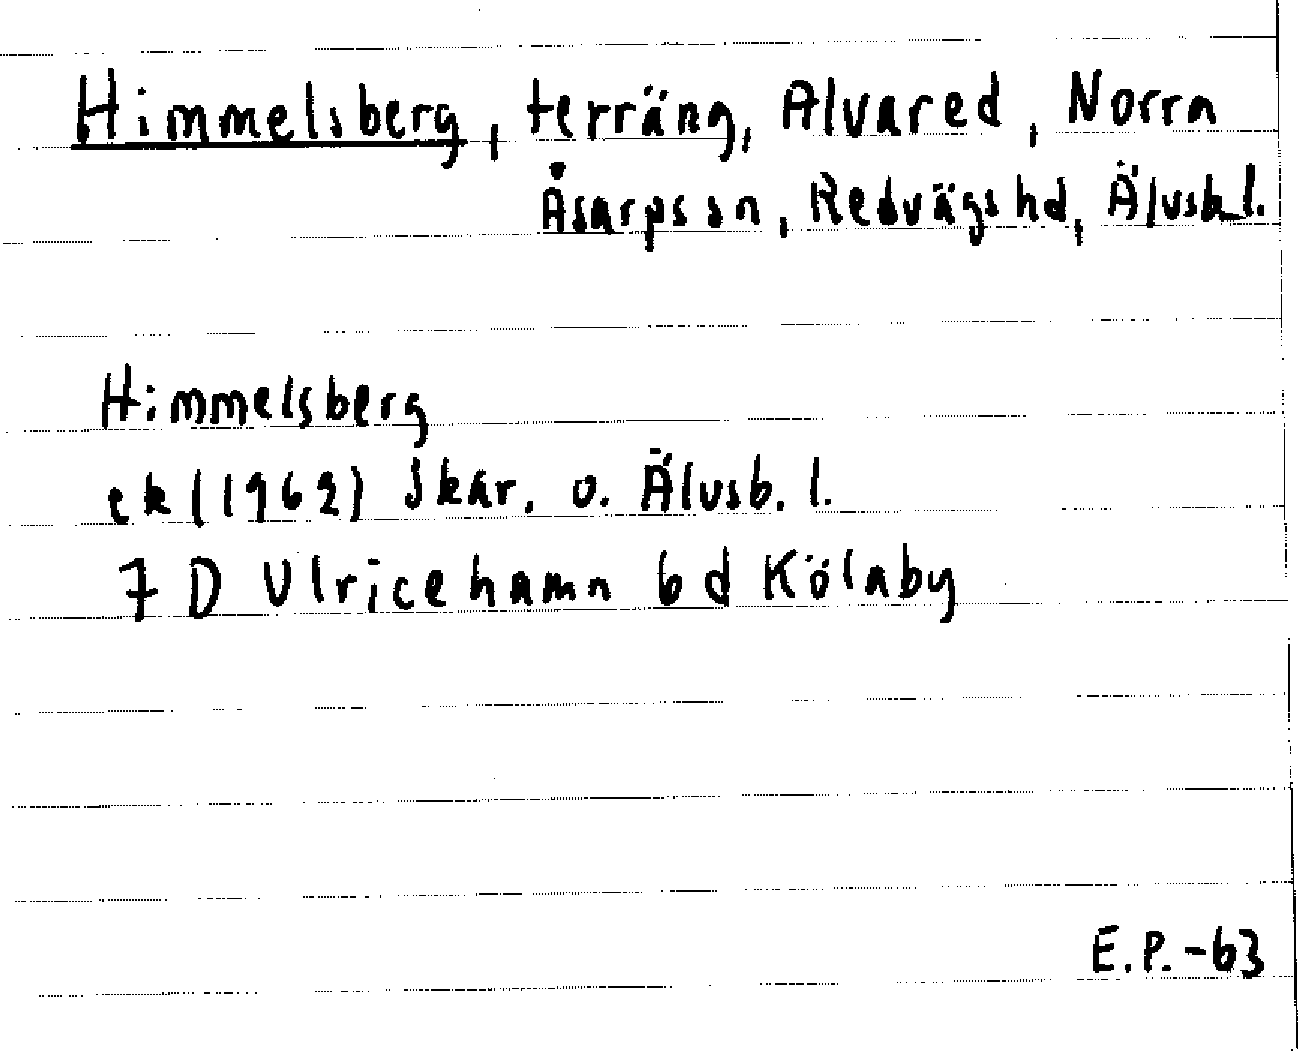 Himmelsberg, terräng, Alvared, Norra
Åsarps sn, Redvägs hd, Älvsb l.
Himmelsberg
ek (1962) Skar. o. Älvsb. l.
7 D Ulricehamn 6 d Kölaby
E.P. -63